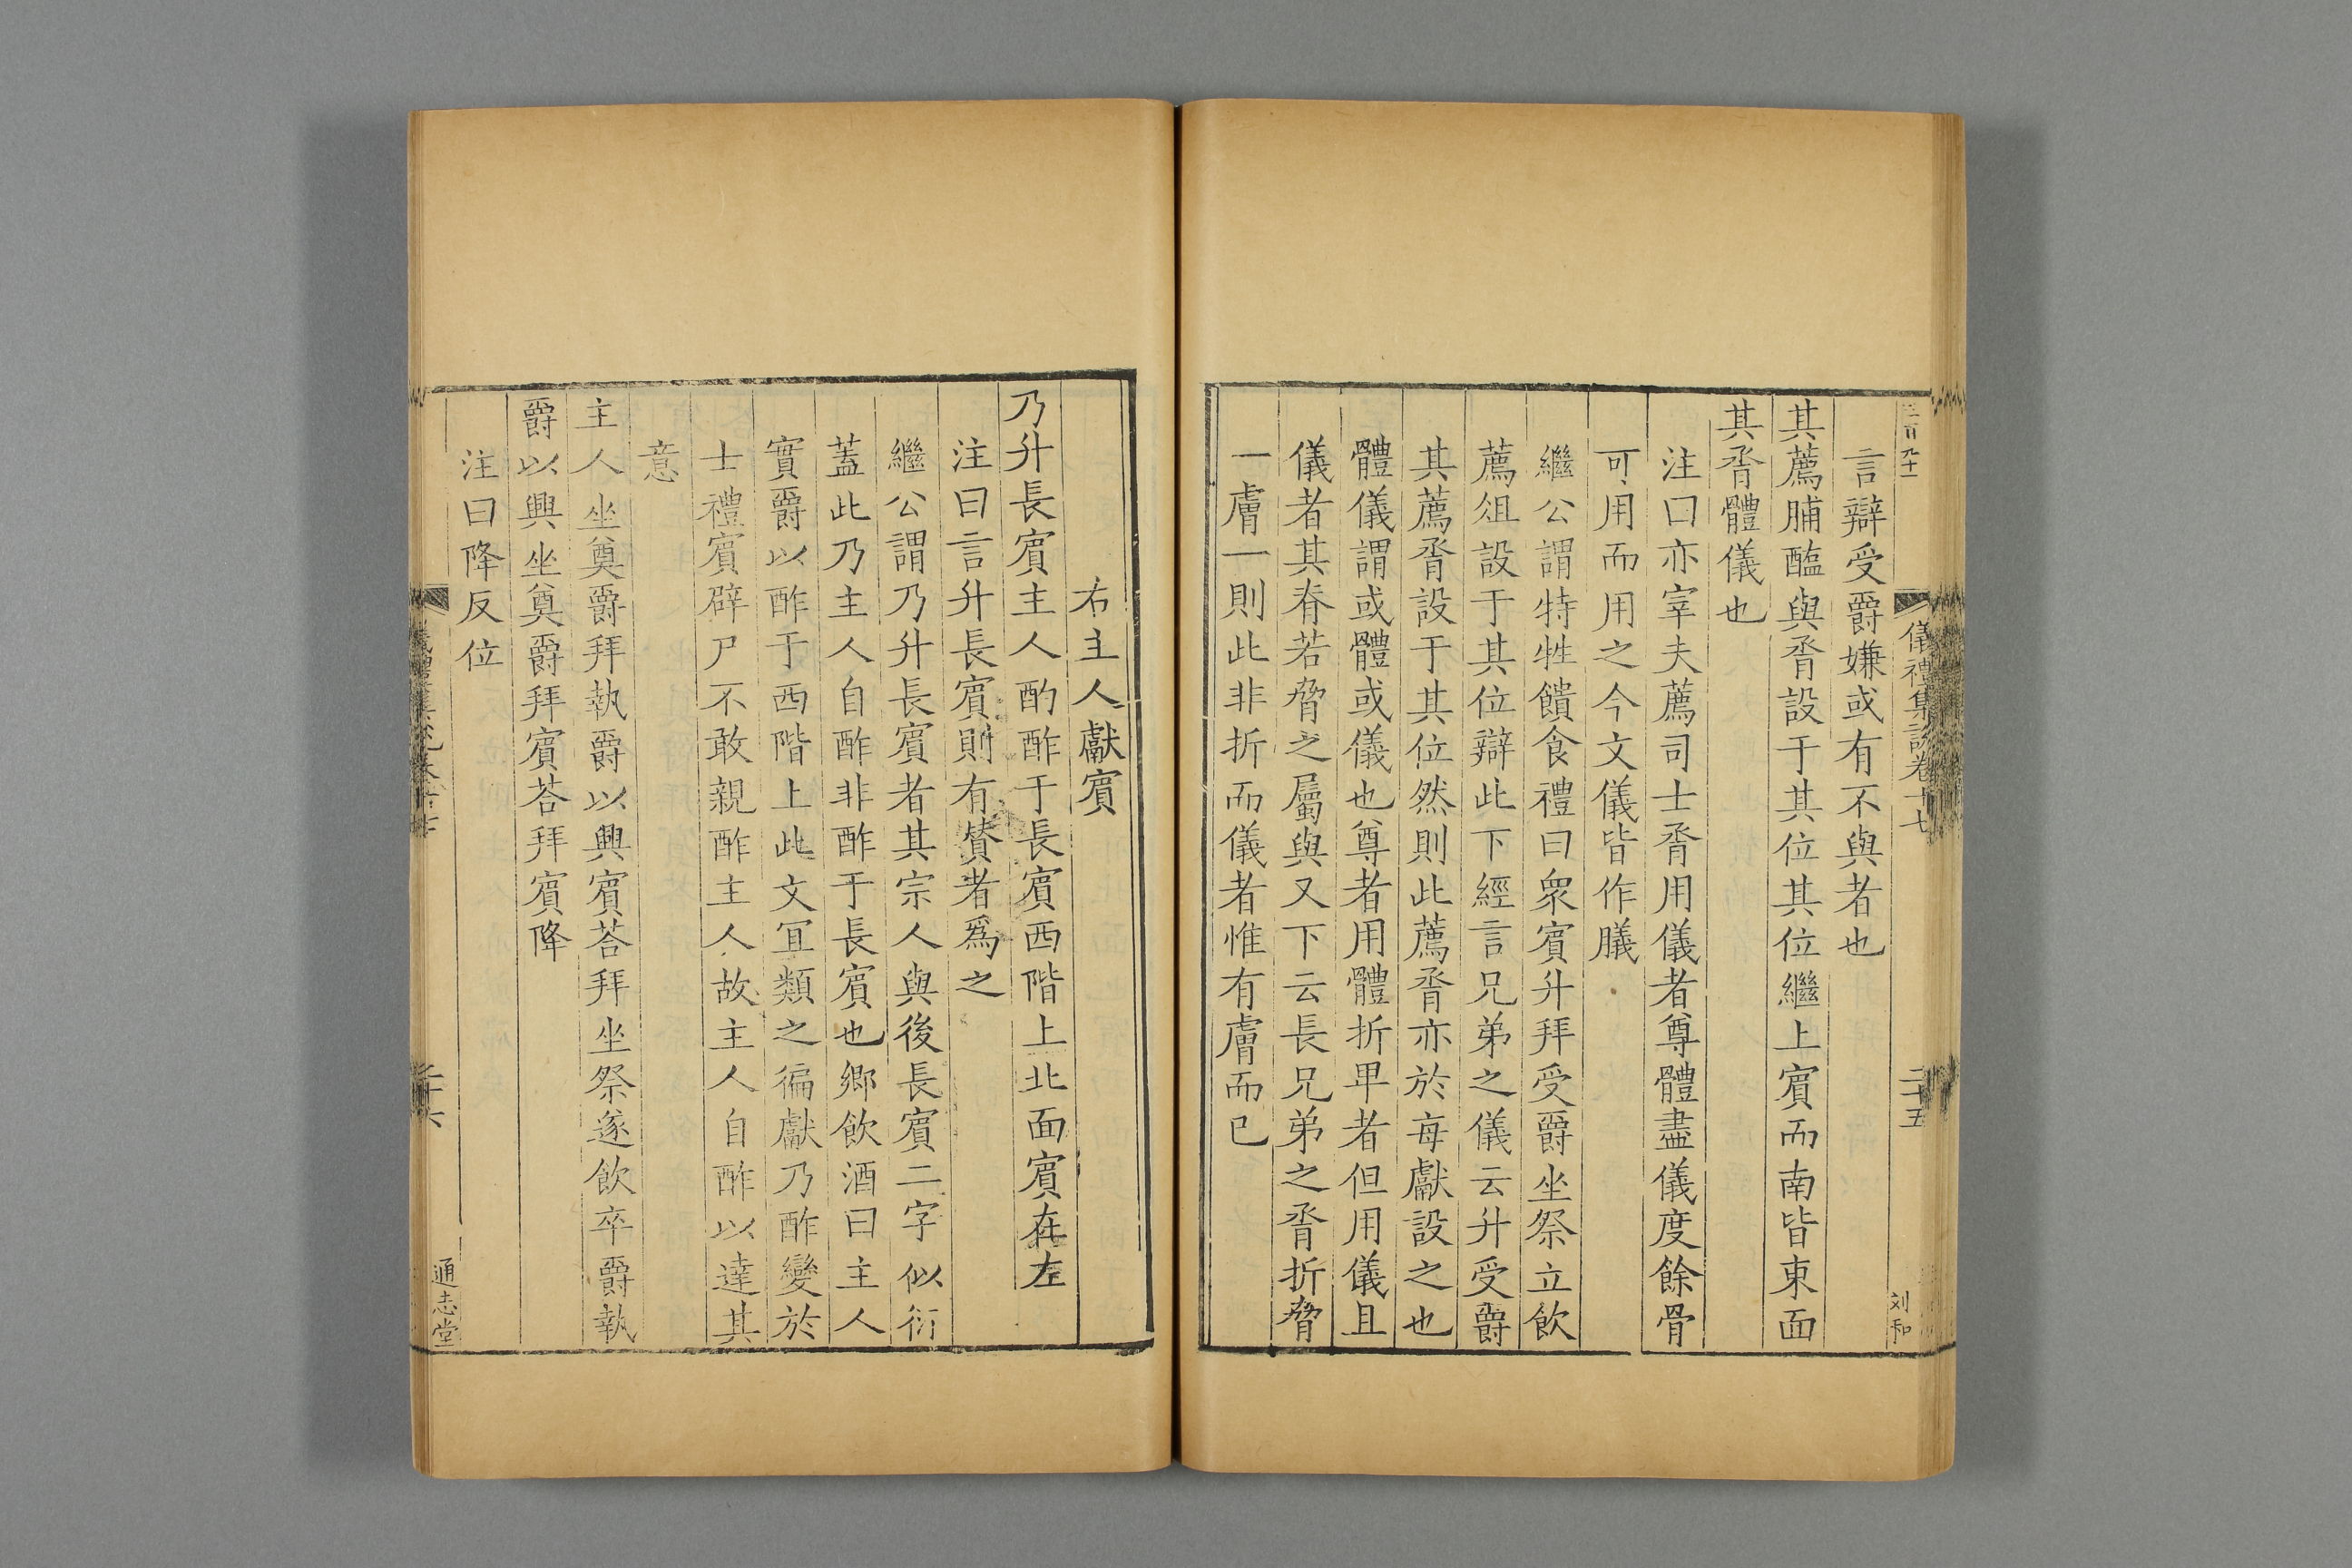 三百九十一
儀禮集說卷十七
二十五
刘和
言辯受爵嫌或有不與者也
其薦脯醢與脀設于其位其位繼上賓而南皆東面
其脀體儀也
注曰亦宰夫薦司士脀用儀者尊體盡儀度餘骨
可用而用之今文儀皆作膱
繼公謂特牲饋食禮曰衆賓升拜受爵坐祭立飲
薦俎設于其位辯此下經言兄弟之儀云升受爵
其薦脀設于其位然則此薦脀亦於每獻設之也
體儀謂或體或儀也尊者用體折卑者但用儀且
儀者其脊若脅之屬與又下云長兄弟之脀折脅
一膚一則此非折而儀者惟有膚而已
右主人獻賓
乃升長賓主人酌酢于長賓西階上北面賓在左
注曰言升長賓則有贊者爲之
繼公謂乃升長賓者其宗人與後長賓二字似衍
蓋此乃主人自酢非酢于長賓也鄉飲酒曰主人
實爵以酢于西階上此文宜類之徧獻乃酢變於
士禮賓辟尸不敢親酢主人故主人自酢以達其
意
主人坐奠爵拜執爵以興賓荅拜坐祭遂飲卒爵執
爵以興坐奠爵拜賓荅拜賓降
注曰降反位
二十六
通志堂